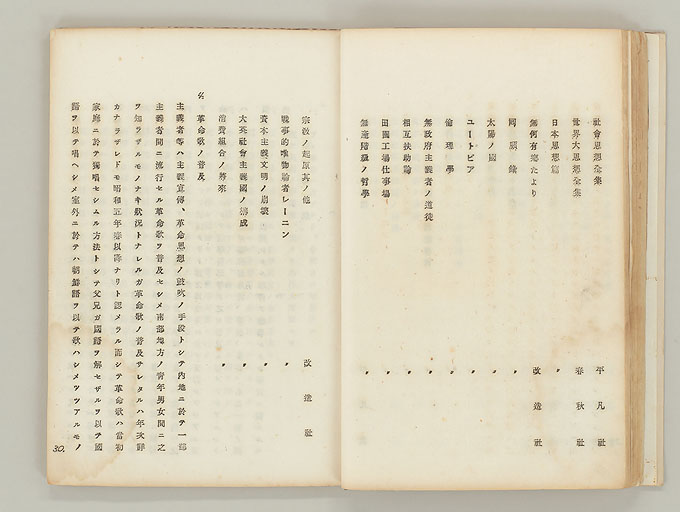 社會思想全集　平凡社
世界大思想全集　春秋社
日本思想篇　〃
無何有鄕だより　改造社
囘顧錄　〃
太陽ノ國　〃
ユートピア　〃
倫理學　〃
無政府主義者ノ道徒　〃
相互扶助論　〃
田園工場仕事場　〃
無產階級ノ哲學　〃
宗敎ノ起原其ノ他　改造社
戰爭的唯物論者レーニン　〃
資本主義文明ノ崩壞　〃
大英社會主義國ノ構成　〃
消費組合ノ將來　〃
革命歌ノ普及
主義者等ハ主義宣傳、革命思想ノ鼓吹ノ手段トシテ內地ニ於テ一部
主義者間ニ流行セル革命歌ヲ普及セシメ南部地方ノ靑年男女間ニ之
ヲ知ラザルモノナキ狀況トナレルガ革命歌ノ普及サレタルハ年次詳
カナラザレドモ昭和五年春以降ナリト認メラル而シテ革命歌ハ當初
家庭ニ於テ獨唱セシムル方法トシテ父兄ガ國語ヲ解セザルヲ以テ國
語ヲ以テ唱ヘシメ室外ニ於テハ朝鮮語ヲ以テ歌ハシメツツアルモノ
30.